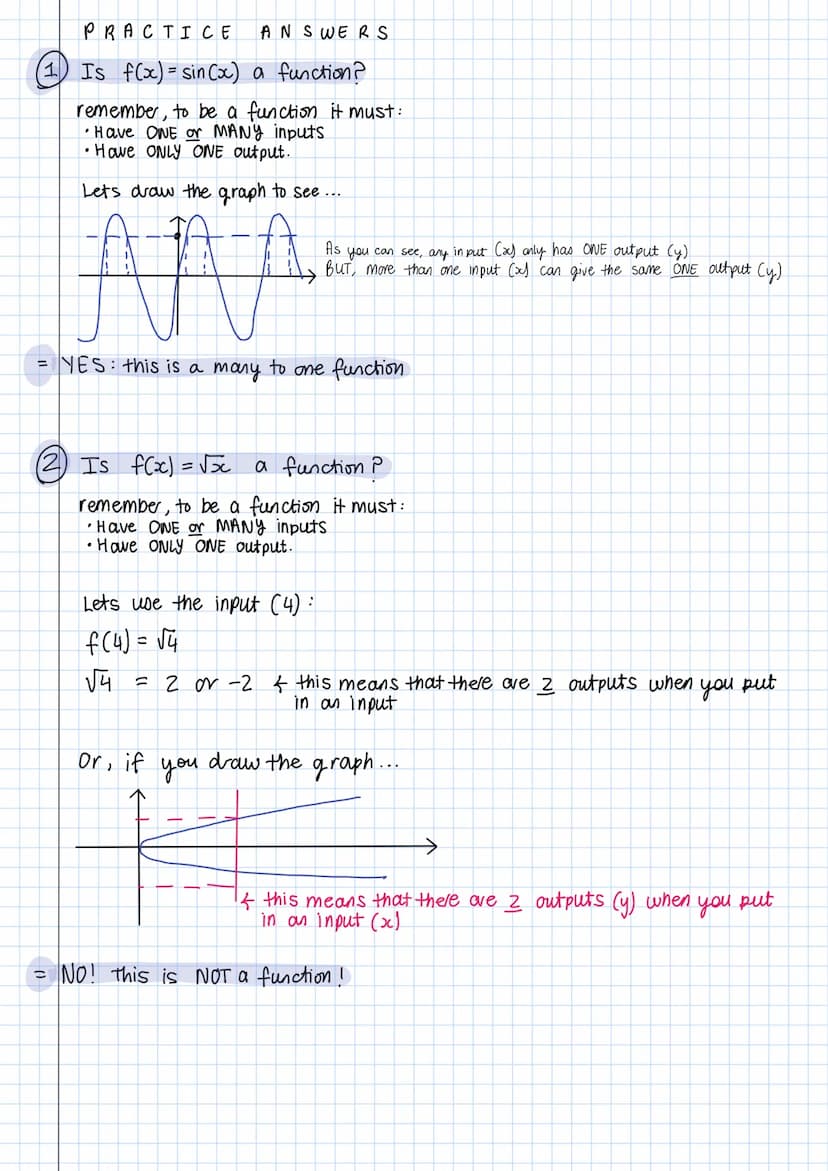 PRACTICE ANSWERS
① Is f(x) = sin(x) a function?
remember, to be a function it must:
• Have ONE or MANY inputs
• Have ONLY ONE output.
Lets draw the graph to see ...
As you can see, any input (x) only has ONE output (y)
BUT, more than one input (x) can give the same ONE output (y)
= YES: this is a many to one function
② Is f(x) = √x a function?
remember, to be a function it must:
• Have ONE or MANY inputs
• Have ONLY ONE output.
Lets use the input (4):
f(4) = √4
√4 = 2 or -2 ← this means that there are 2 outputs when you put
in an input
Or, if you draw the graph...
← this means that there are 2 outputs (y) when you put
in an input (x)
= NO! this is NOT a function!